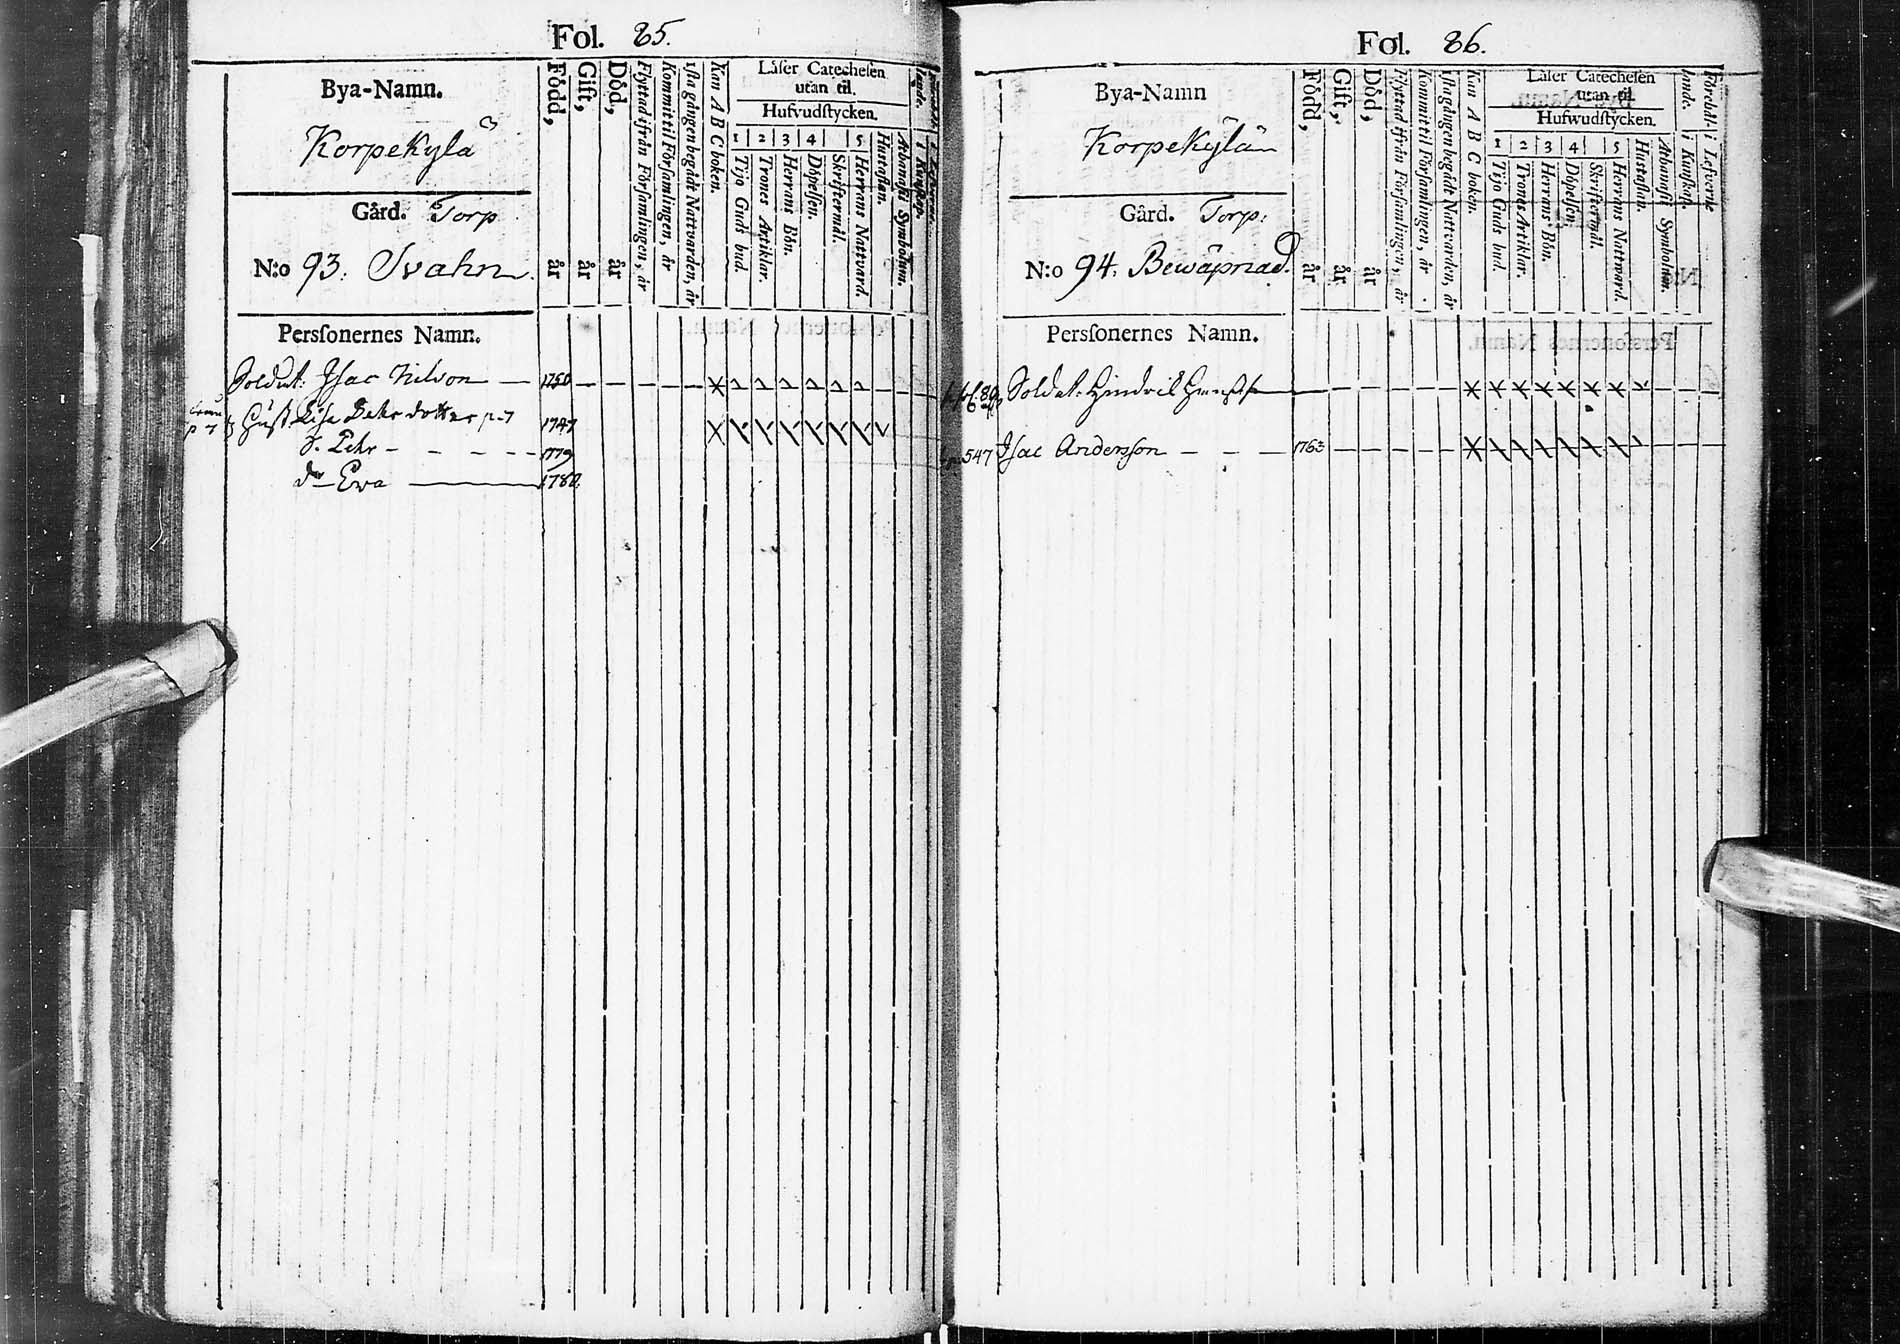 Fol. 85.
Bya-Namn.
Korpekylä
Gård. Torp
N:o 93. Svahn.
Persſonernes Namn.
Född, år
Gift, år
Död, år
Flyttad ifrån Förſamlingen, år
Kommit til Förſamlingen, år
1ſta gången begådt Nattvarden, år
Kan A B C boken.
Läſer Catecheſen
utan til.
Hufvudſtycken.
1 2 3 4 5
Tijo Guds bud.
Trones Artiklar.
Herrans Bön.
Döpelſen.
Skriftermål.
Herrans Nattvard.
Huſtaflan.
Athanaſii Symbolum.
Soldat. Iſac Nilſon — 1750
Huſt. Liſa Pehrsdotter p. 7 1747
S. Pehr — 1779
dr Ewa — 1780.
Fol. 86.
Bya-Namn
Korpekylän
Gård. Torp.
N:o 94. Bewäpnad.
Persſonernes Namn.
Född, år
Gift, år
Död, år
Flyttad ifrån Förſamlingen, år
Kommit til Förſamlingen, år
1ſta gången begådt Nattvarden, år
Kan A B C boken.
Läſer Catecheſen
utan til.
Hufwudſtycken.
1 2 3 4 5
Tijo Guds bud.
Trones Artiklar.
Herrans Bön.
Döpelſen
Skriftermål.
Herrans Nattvard.
Huſtaflan.
Athanaſii Symbolum.
i Kunſkap.
i Lefverne
Soldat. Hindric
547 Iſac Andersſon — 1763